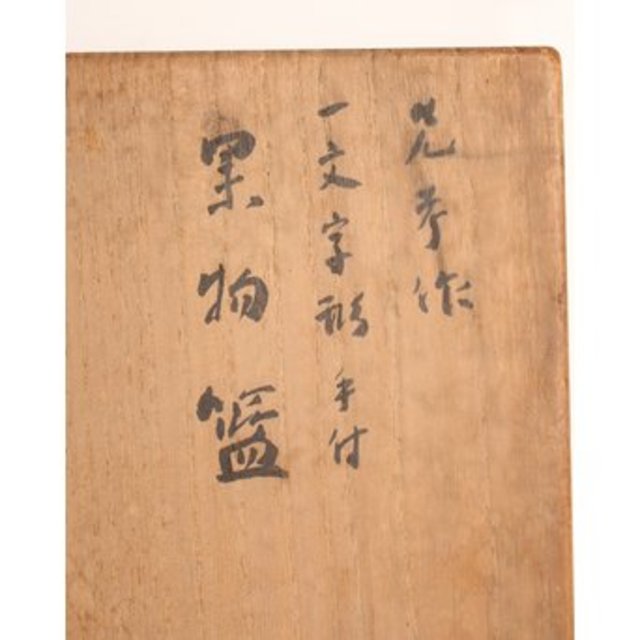 光峯作
一文字形手付
果物籃